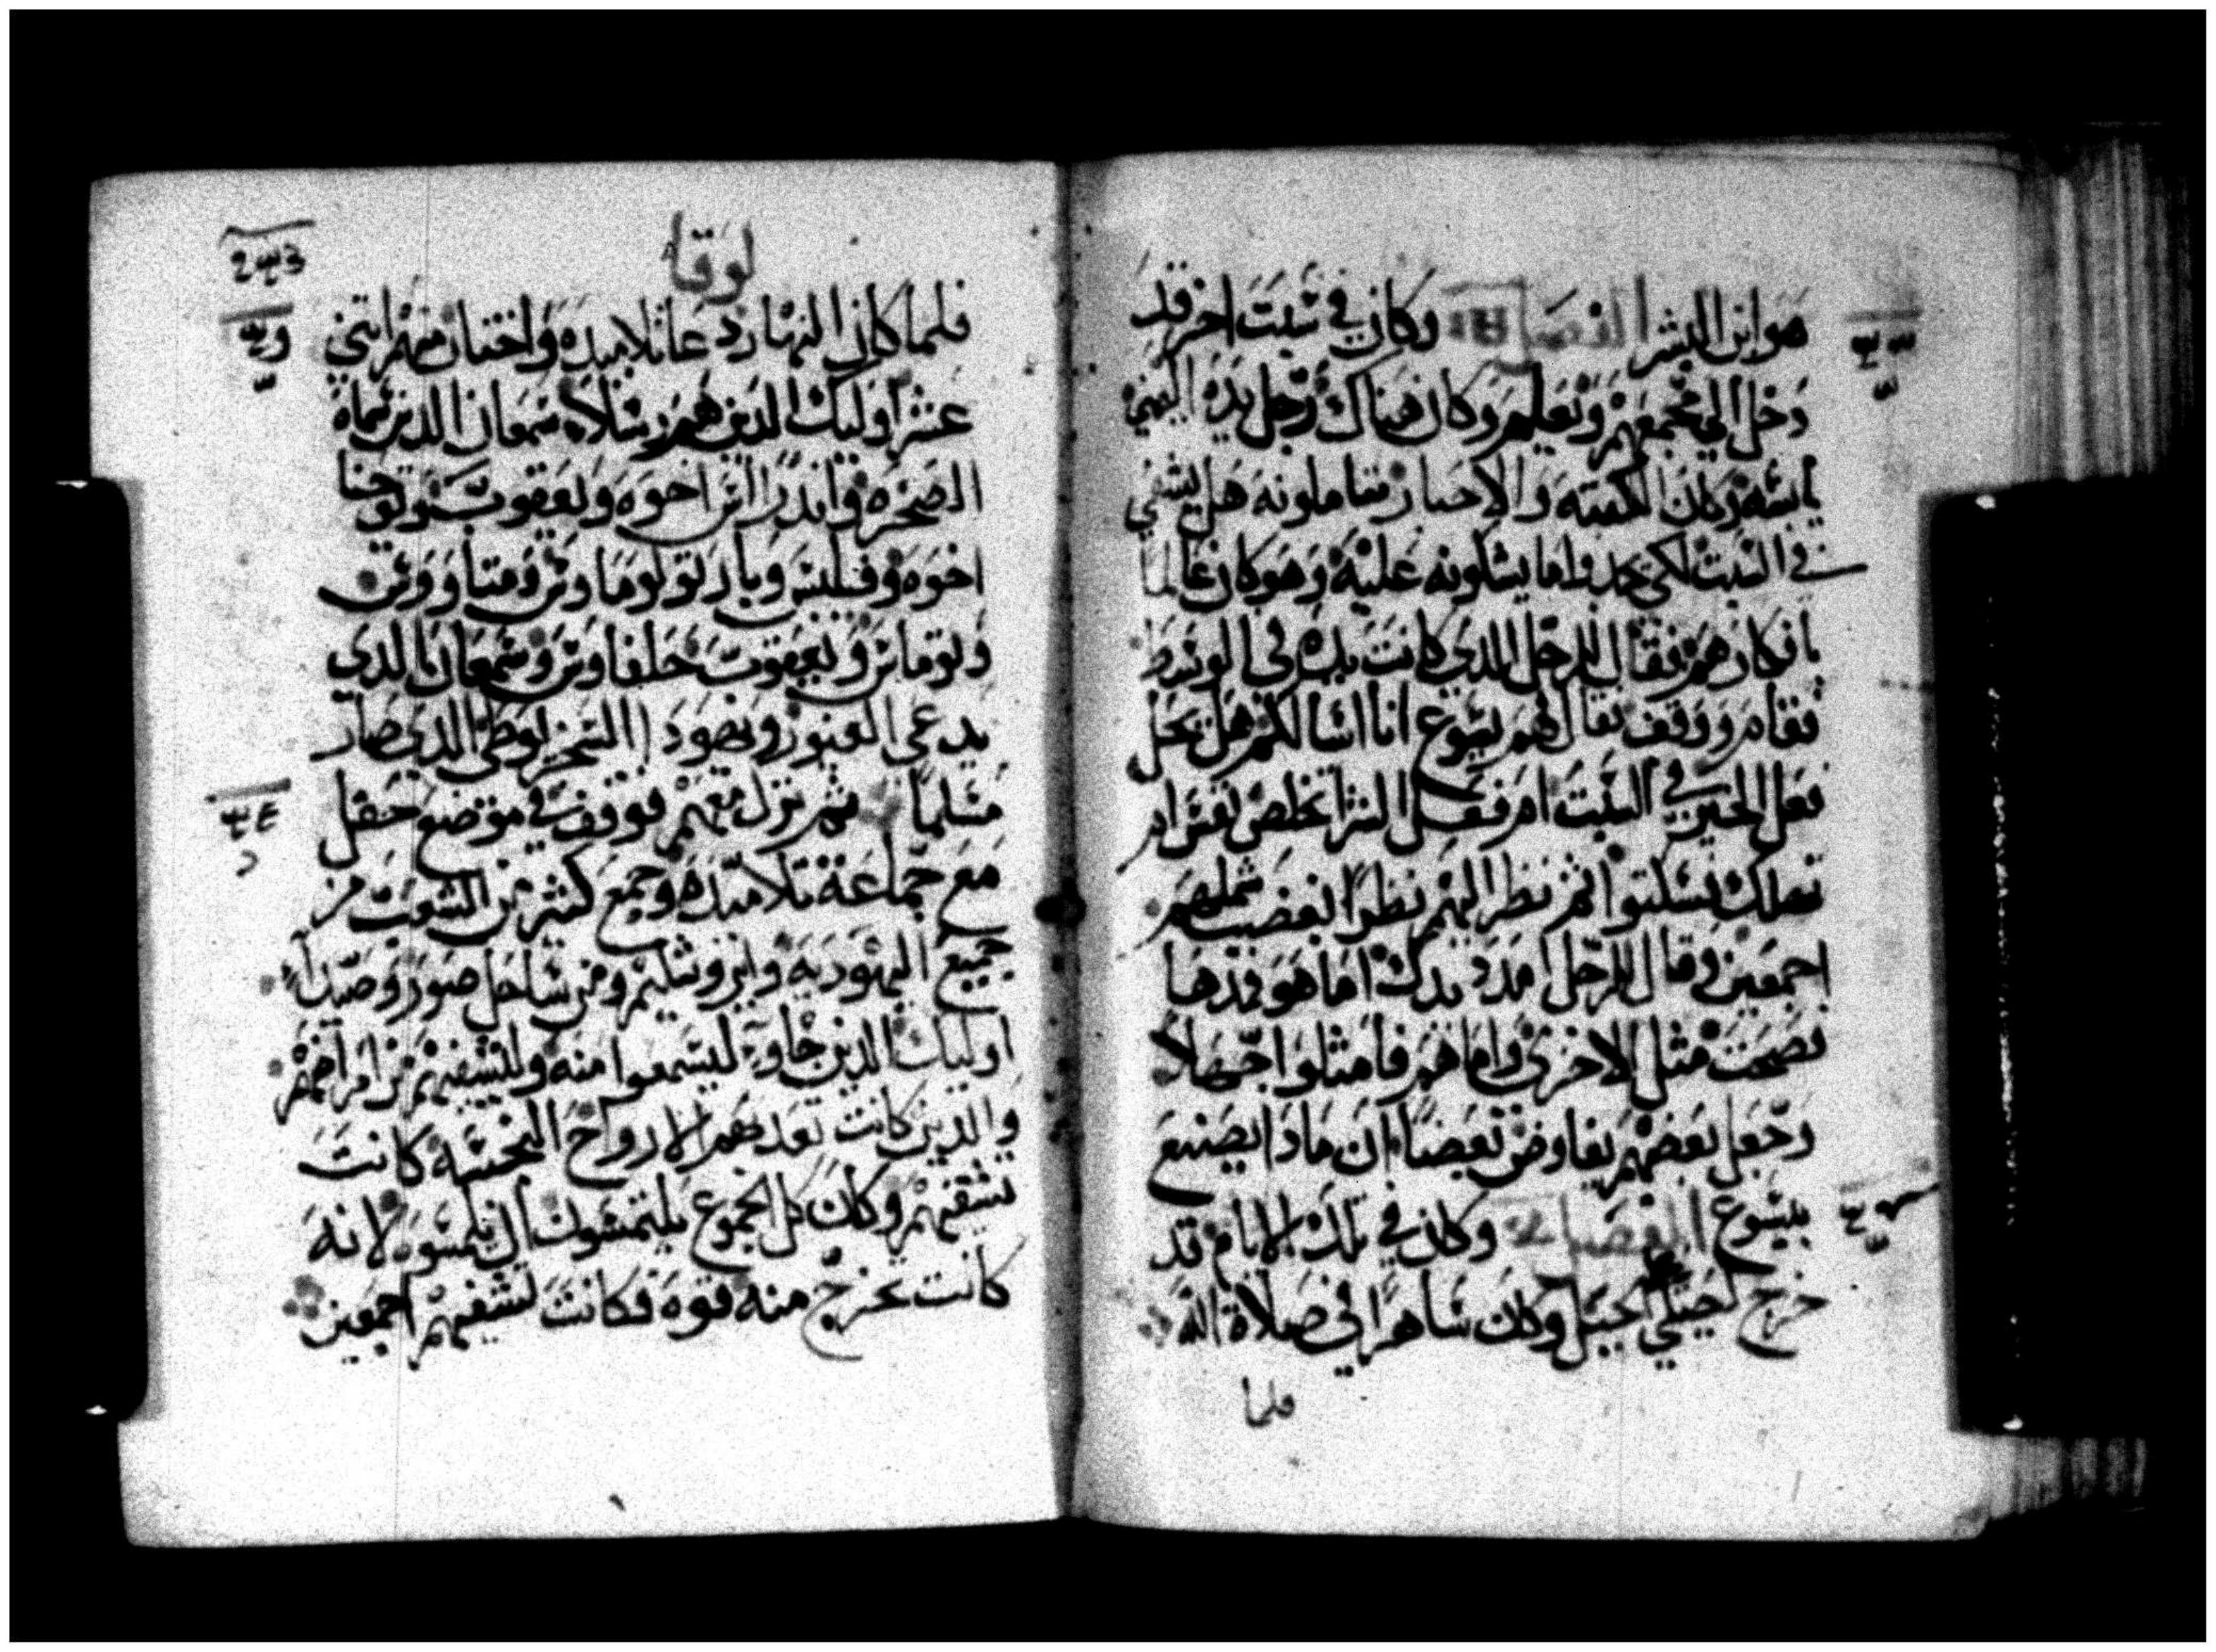 هو ابن البشر الفصل وكان في سبت اخر قد
دخل الي مجمعهم وتعليم وكان هناك رجل يده اليمني
يابسه وكان الكتبه والاحبار يتاملونه هل يشفي
في السبت لكي يجدوا ما يشلونه عليه وهو كان عالما
بافكارهم فقال للرجل الذي كانت يده في الوسط
فقام ووقف فقال لهم يسوع انا اسالكم هل يحل
فعل الخير في السبت ام فعل الشر اتخلص نفس ام
تهلك فسكتوا ثم نظر اليهم نظرا لغضب شملهم
اجمعين وقال للرجل امدد يدك اما هو فمدها
فصحت مثل الاخري واما هم فامتلوا جهلا
وجعل بعضهم يفاوض بعضا ان ماذا يصنع
بيسوع الفصل وكان في تلك الايام قد
خرج ليصلي الجبل وكان ساهرا في صلاة الله
فلما
لوقا
فلما كان النهار دعا تلاميده واختار منهم اثني
عشر اوليك الدين هم رسلا سمعان الدي سماه
الصخره واندراس اخوه ويعقوب ويوحنا
اخوه وفيلبس وبارتولوماوس ومتاووس
وتوماس ويعقوب حلفاوس وسمعان الدي
يدعي الغيور ويهودا السخريوطي الدي صار
مسلما ثم نزل معهم فوقف في موضع حقل
مع جماعة تلاميده وجمع كثير من الشعب من
جميع اليهوديه وايروشليم ومن ساحل صور وصيدا
اوليك الدين جاو ليسمعوا منه وليشفيهم من امراضهم
والدين كانت تعدبهم الارواح النجسه كانت
تشفيهم وكان كل الجموع يلتمسون ان يلمسوه لانه
كانت تخرج منه قوه فكانت تشفيهم اجمعين